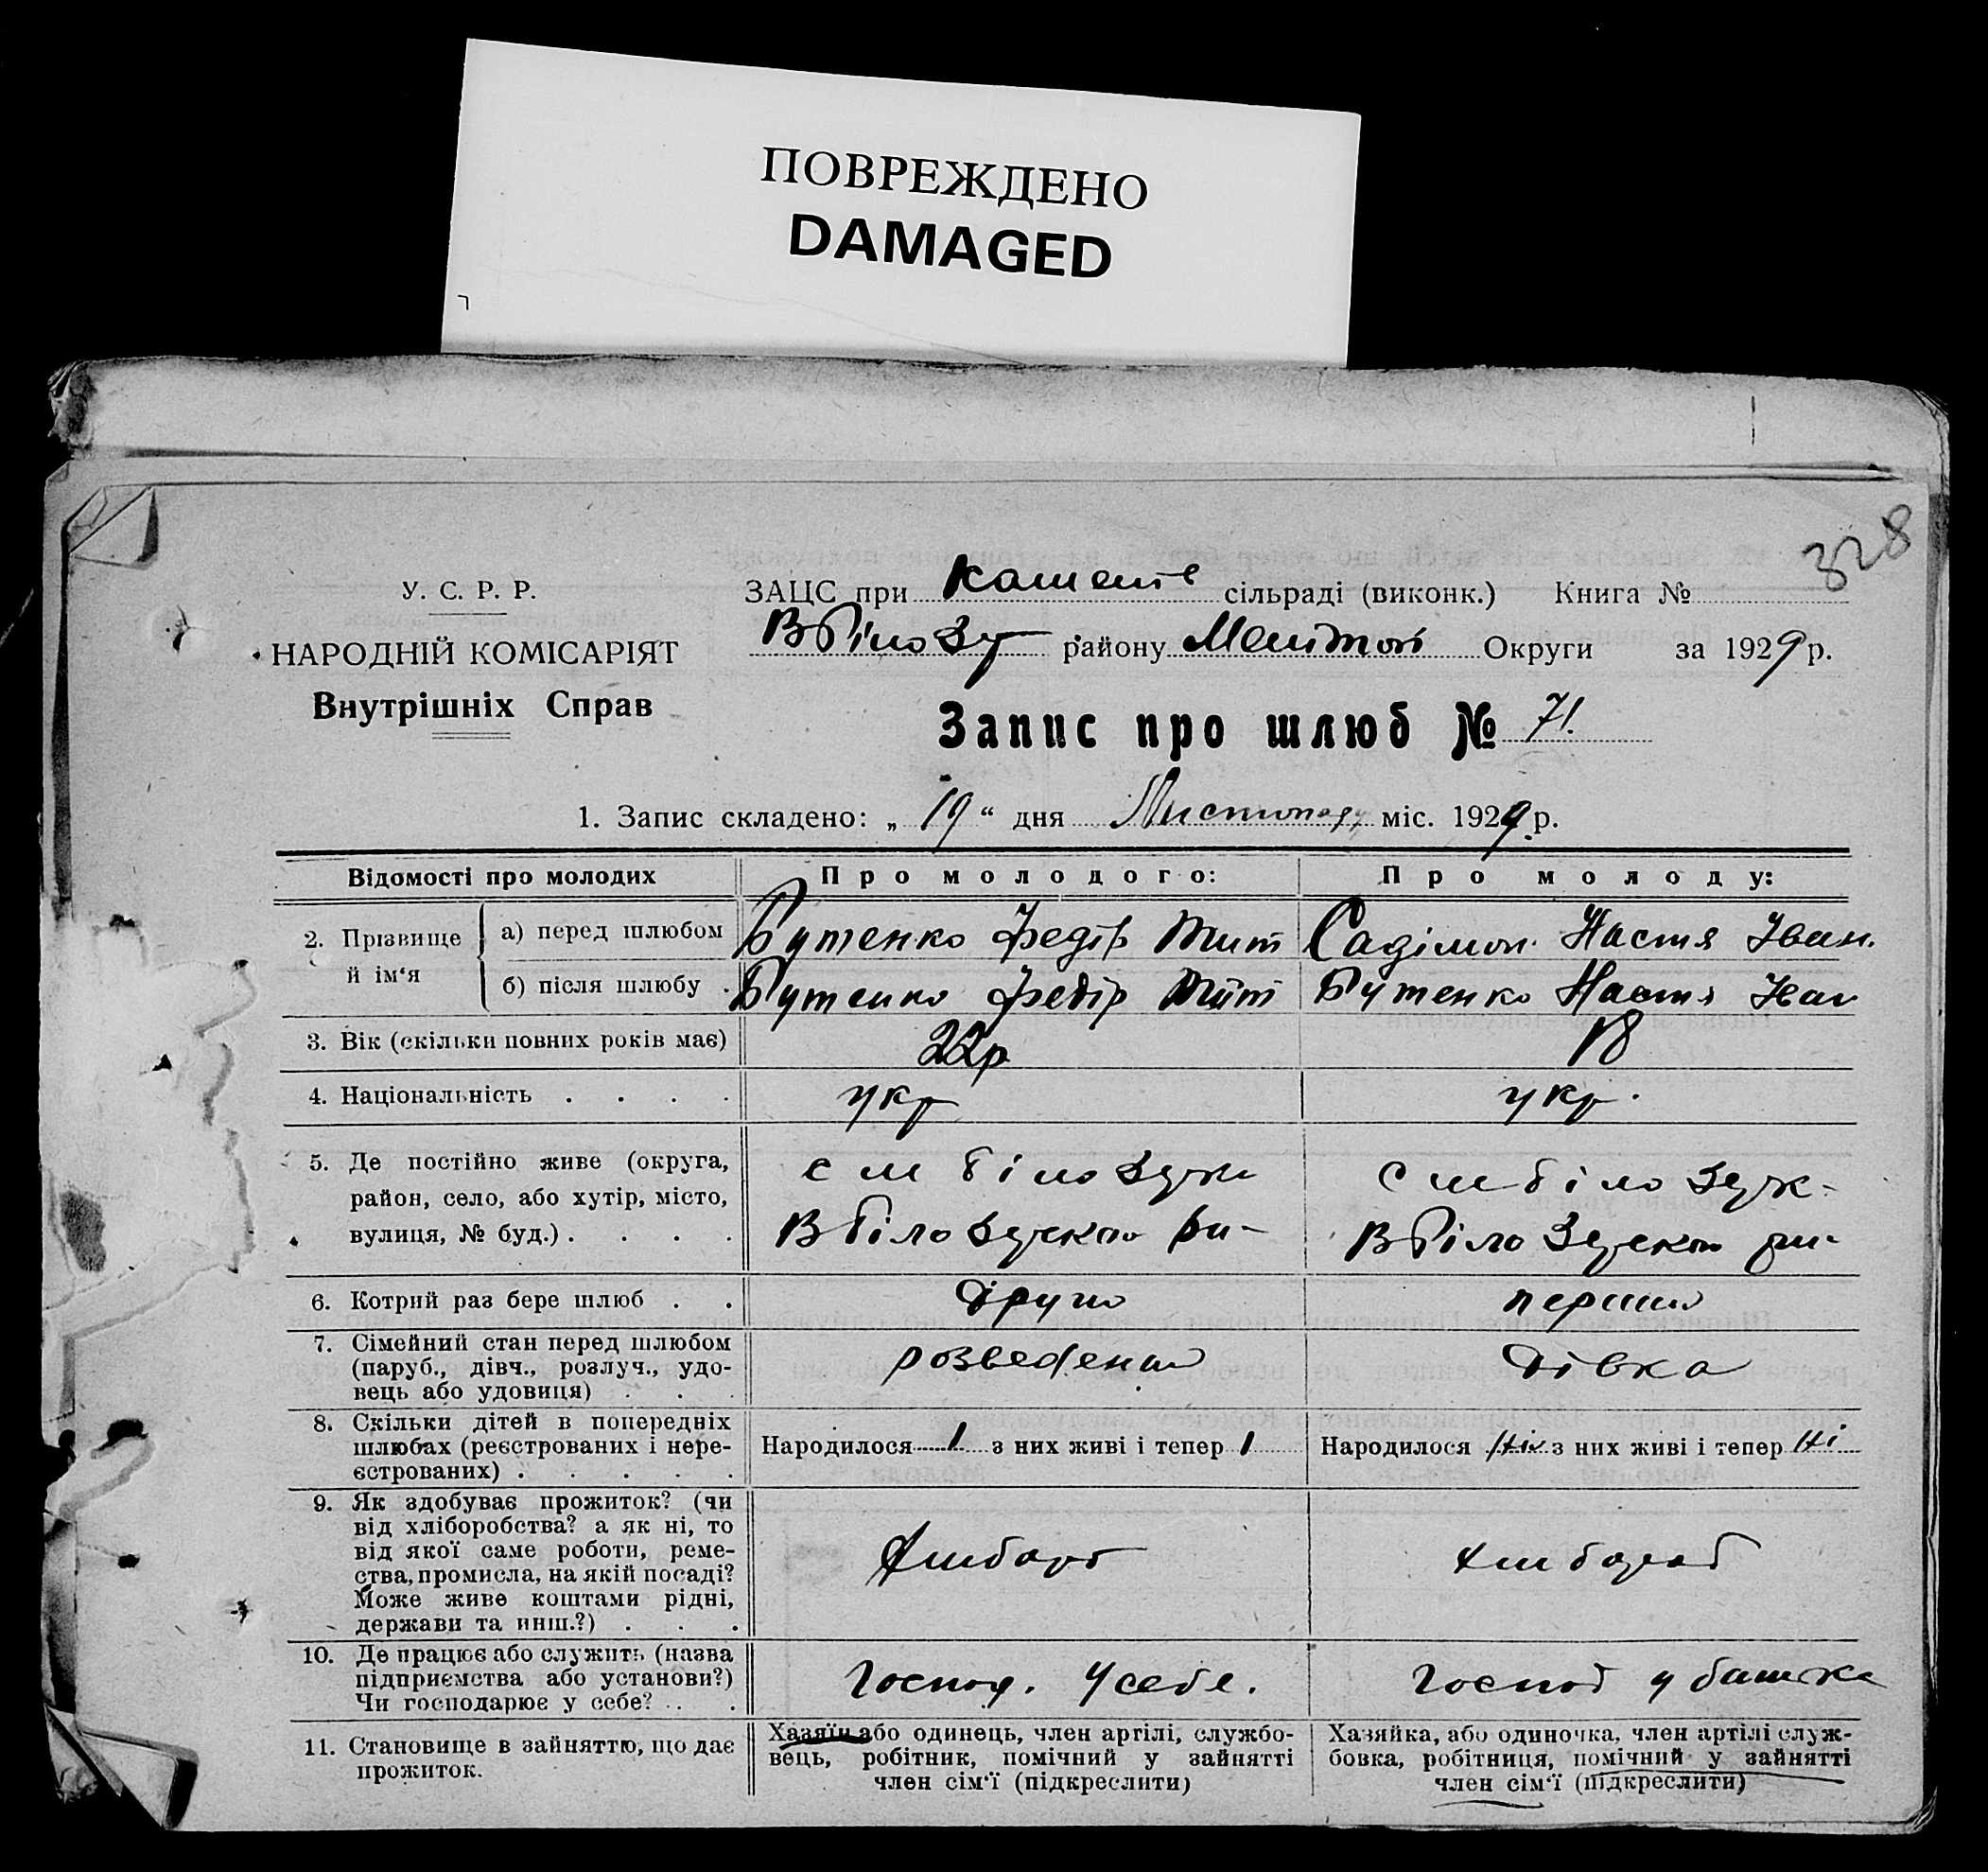 ПОВРЕЖДЕНО
DAMAGED
328
У. С. Р. Р.
НАРОДНІЙ КОМІСАРІЯТ
Внутрішніх Справ
ЗАЦС при сільраді (виконк.) Книга №
району Округи за 1929 р.
Запис про шлюб № 71.
1. Запис складено: „ 19 “ дня Листопаду міс. 1929 р.
Відомості про молодих Про молодого: Про молоду:
2. Прізвище й ім‘я
а) перед шлюбом Бутенко Федір Тит Настя Іван.
б) після шлюбу . Бутенко Федір Тит Бутенко Настя Іван
3. Вік (скільки повних років має) 22р 18
4. Національність . . . . укр укр.
5. Де постійно живе (округа,
район, село, або хутір, місто,
вулиця, № буд.) . . . .
6. Котрий раз бере шлюб . . перший
7. Сімейний стан перед шлюбом
(паруб., дівч., розлуч., удо-
вець або удовиця) . . .
розведений Дівка
8. Скільки дітей в попередніх
шлюбах (реєстрованих і нере-
єстрованих) . . . . .
Народилося 1 з них живі і тепер 1 Народилося з них живі і тепер Ні
9. Як здобуває прожиток? (чи
від хліборобства? а як ні, то
від якої саме роботи, реме-
ства, промисла, на якій посаді?
Може живе коштами рідні,
держави та инш.?) . . .
10. Де працює або служить (назва
підприємства або установи?)
Чи господарює у себе? . . .
Господ. у себе. Господ у батька
11. Становище в зайняттю, що дає
прожиток.
Хазяїн або одинець, член артілі, службо-
вець, робітник, помічний у зайнятті
член сім‘ї (підкреслити)
Хазяйка, або одиночка, член артілі служ-
бовка, робітниця, помічний у зайнятті
член сім‘ї (підкреслити)